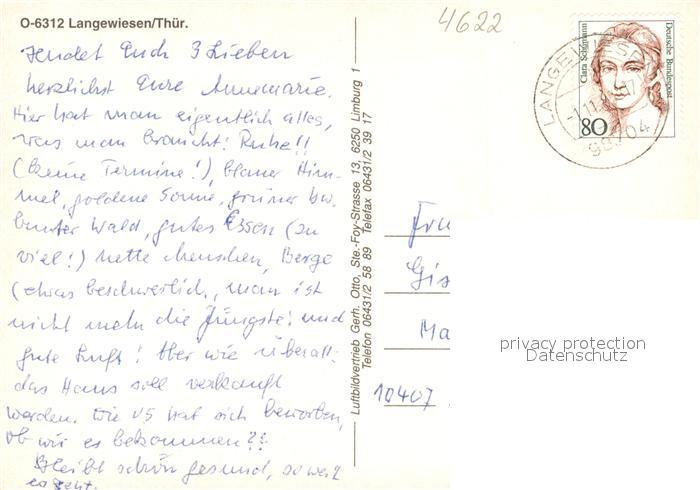 O-6312 Langewiesen/Thür.
4622
sendet Euch 3 Lieben
herzlichst Eure Annemarie.
Hier hat man eigentlich alles,
was man braucht: Ruhe!!
(keine Termine!), blauer Him-
mel, goldene Sonne, grüner bzw.
bunter Wald, gutes Essen (zu
viel!) nette Menschen, Berge
(etwas beschwerlich, man ist
nicht mehr die Jüngste! und
gute Luft! Aber wie überall:
das Haus soll verkauft
werden. Die VS hat sich beworben,
ob wir es bekommen??
Bleibt schön gesund, so weit
es geht.
Luftbildvertrieb Gerh. Otto, Ste.-Foy-Strasse 13, 6250 Limburg 1
Telefon 06431/2 58 89 Telefax 06431/2 39 17
Deutsche Bundespost
Clara Schumann
80
LANGEWIESEN
98704
Frau
Gis
Ma
10407
privacy protection
Datenschutz